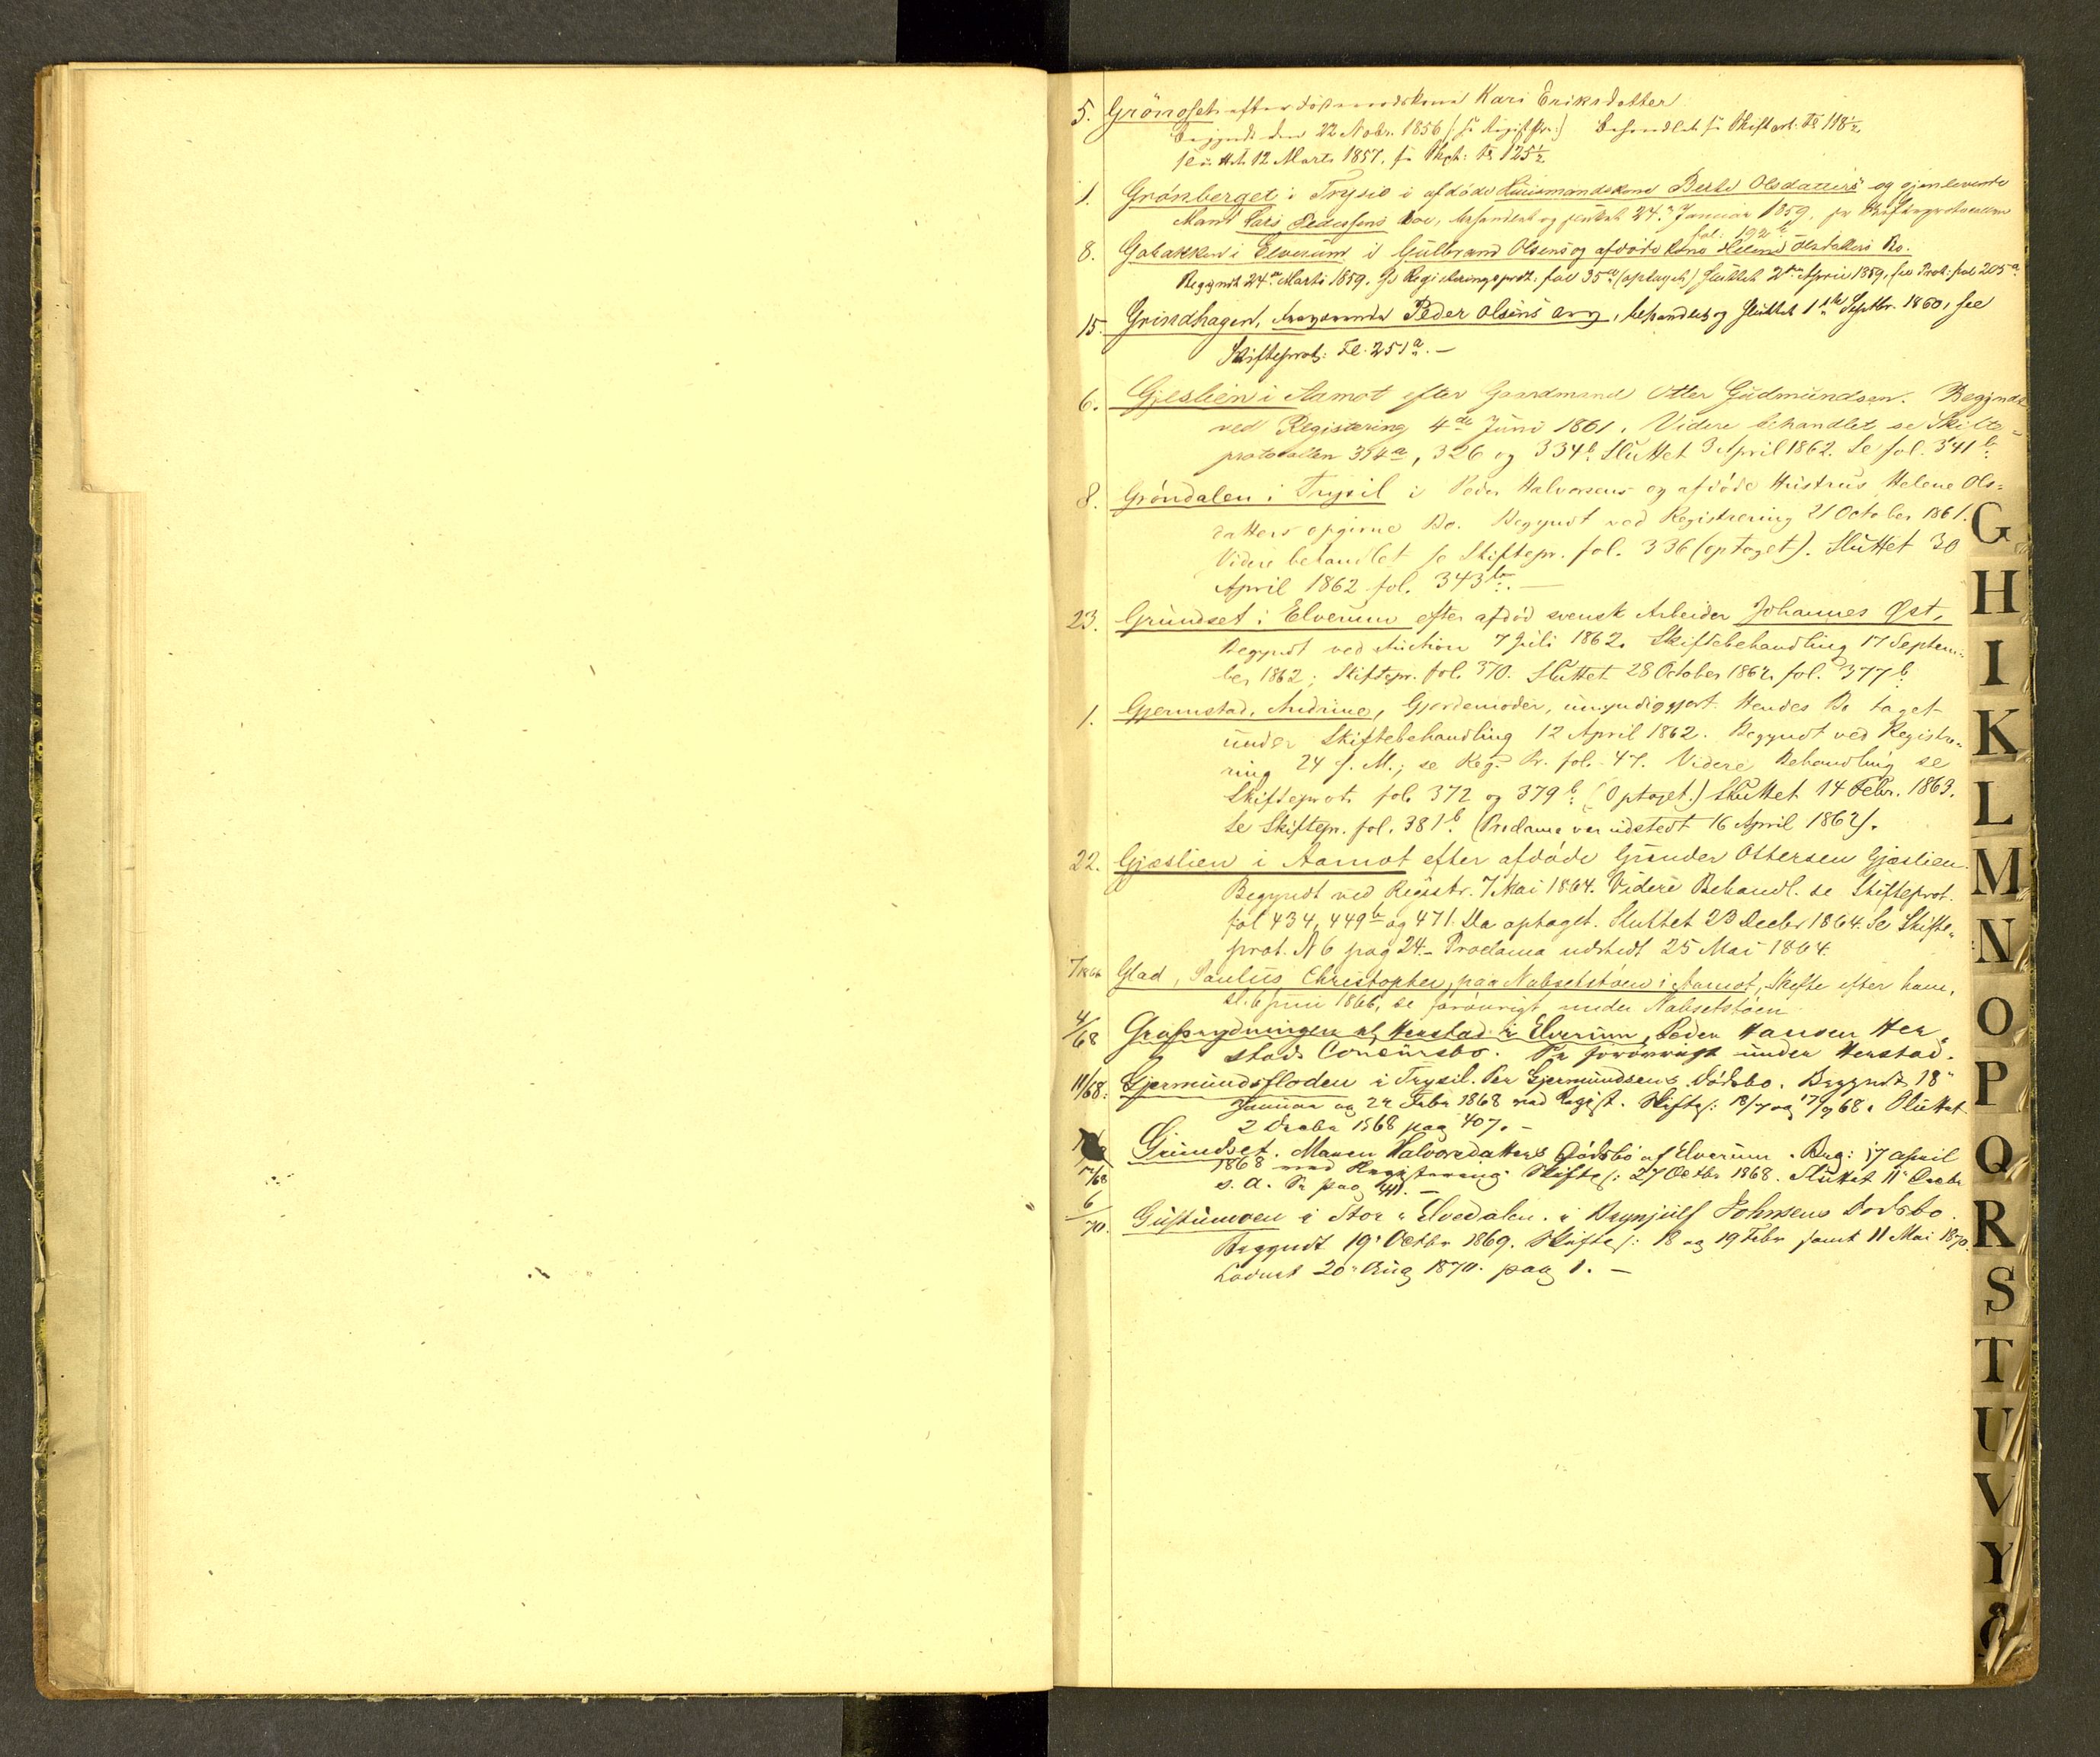 5. Gröngset efter Kari Eriksdatter
Begyndt den 22 Novbr. 1856 (se Registr:) behandlet se Skiftprt. Fol 118½
sluttet 12 Marts 1857. se Skpt: Fol 125½
1. Grönberget i Trysil i afdøde Huusmandskone Berte Olsdatters og gjenlevende
Mand Lars Pedersens Boe, behandlet og sluttet 24. Januar 1859, se Skifteprotocollen
fol: 192 b
8. Gabakken i Elverum i Gulbrand Olsens og afdøde Kone Helene Olsdatters Bo.
Begyndt 24de Marts 1859. Se Registreringsprot. fol 35a (optaget) sluttet 2den April 1859, see Prot: fol 205a
15. Grindhagen, Peder Olsens Arv, behandlet og sluttet 1ste Septbr. 1860, see
Skifteprot: Fl. 251a. -
6. Gjeslien i Aamot efter Gaardmand Otter Gudmundsen. Begyndt
ved Registering 4de Juni 1861. Videre behandlet se Skifte=
protocollen 314a, 326 og 334b. Sluttet 3 April 1862. Se fol. 341b.
8. Gröndalen i Trysil i Peder Halvorsens og afdöde Hustrus Helene Ols=
datters opgivne Bo. Begyndt ved Registrering 21 October 1861.
Videre behandlet se Skiftepr. fol. 336 (optaget). Sluttet 30
April 1862 fol. 343b. -
23. Grundset i Elverum efter afdöd svensk Arbeider Johannes Øst,
Begyndt ved Auction 7 Juli 1862. Skiftebehandling 17 Septem=
ber 1862; Skiftepr. fol. 370. Sluttet 28 October 1862, fol. 377b.
1. Gjermstad, Andrine, Gjordemoder, umyndiggjort. Hendes Bo taget
under Skiftebehandling 12 April 1862. Begyndt ved Registre=
ring 24 s. M.; se Reg. Pr. fol. 47. Videre Behandling se
Skifteprot. fol. 372 og 379b. (Optaget.) Sluttet 14 Febr. 1863.
Se Skiftepr. fol. 381b. (Proclama var udstedt 16 April 1862).
22. Gjæslien i Aamot efter afdöde Gunder Ottersen Gjæslien.
Begyndt ved Registr. 7 Mai 1864. Videre Behandl. se Skifteprot.
fol 434, 449b og 471. Da optaget. Sluttet 23 Decbr 1864. Se Skifte=
prot. N 6 pag 24. - Proclama udstedt 25 Mai 1864.
7/1866 Glad, Paulus Christopher, paa Nabsetstöen i Aamot, Skifte efter ham,
sl. 6 Juni 1866, se forövrigt under Nabsetstöen
4/68 Grasrydningen af Herstad i Elverum, Peder Hansen Her=
stads Concursbo. Se forövrigt under Herstad.
11/68: Gjermundsfloden i Trysil. Per Gjermundsens Dödsbo. Begyndt 18
Januar og 22 Febr 1868 ved Regist. Skiftes: 18/7 og 17/9 68. Sluttet
2 Decbr 1868 pag 407. -
12/68 Grundset. Maren Halvorsdatters Dödsbo af Elverum. Beg: 17 April
1868 ved Registrering Skiftes: 27 Octbr 1868. Sluttet 11 Decbr
s. A. Se pag 411. -
6/70. Gustumoen i Stor=Elvedalen. i Brynjulf Johnsens Dødsbo.
Begyndt 19 Octbr 1869. Skiftes: 18 og 19 Febr samt 11 Mai 1870.
20 Aug 1870. pag 1. -
G
H
I
K
L
M
N
O
P
Q
R
S
T
U
V
Y